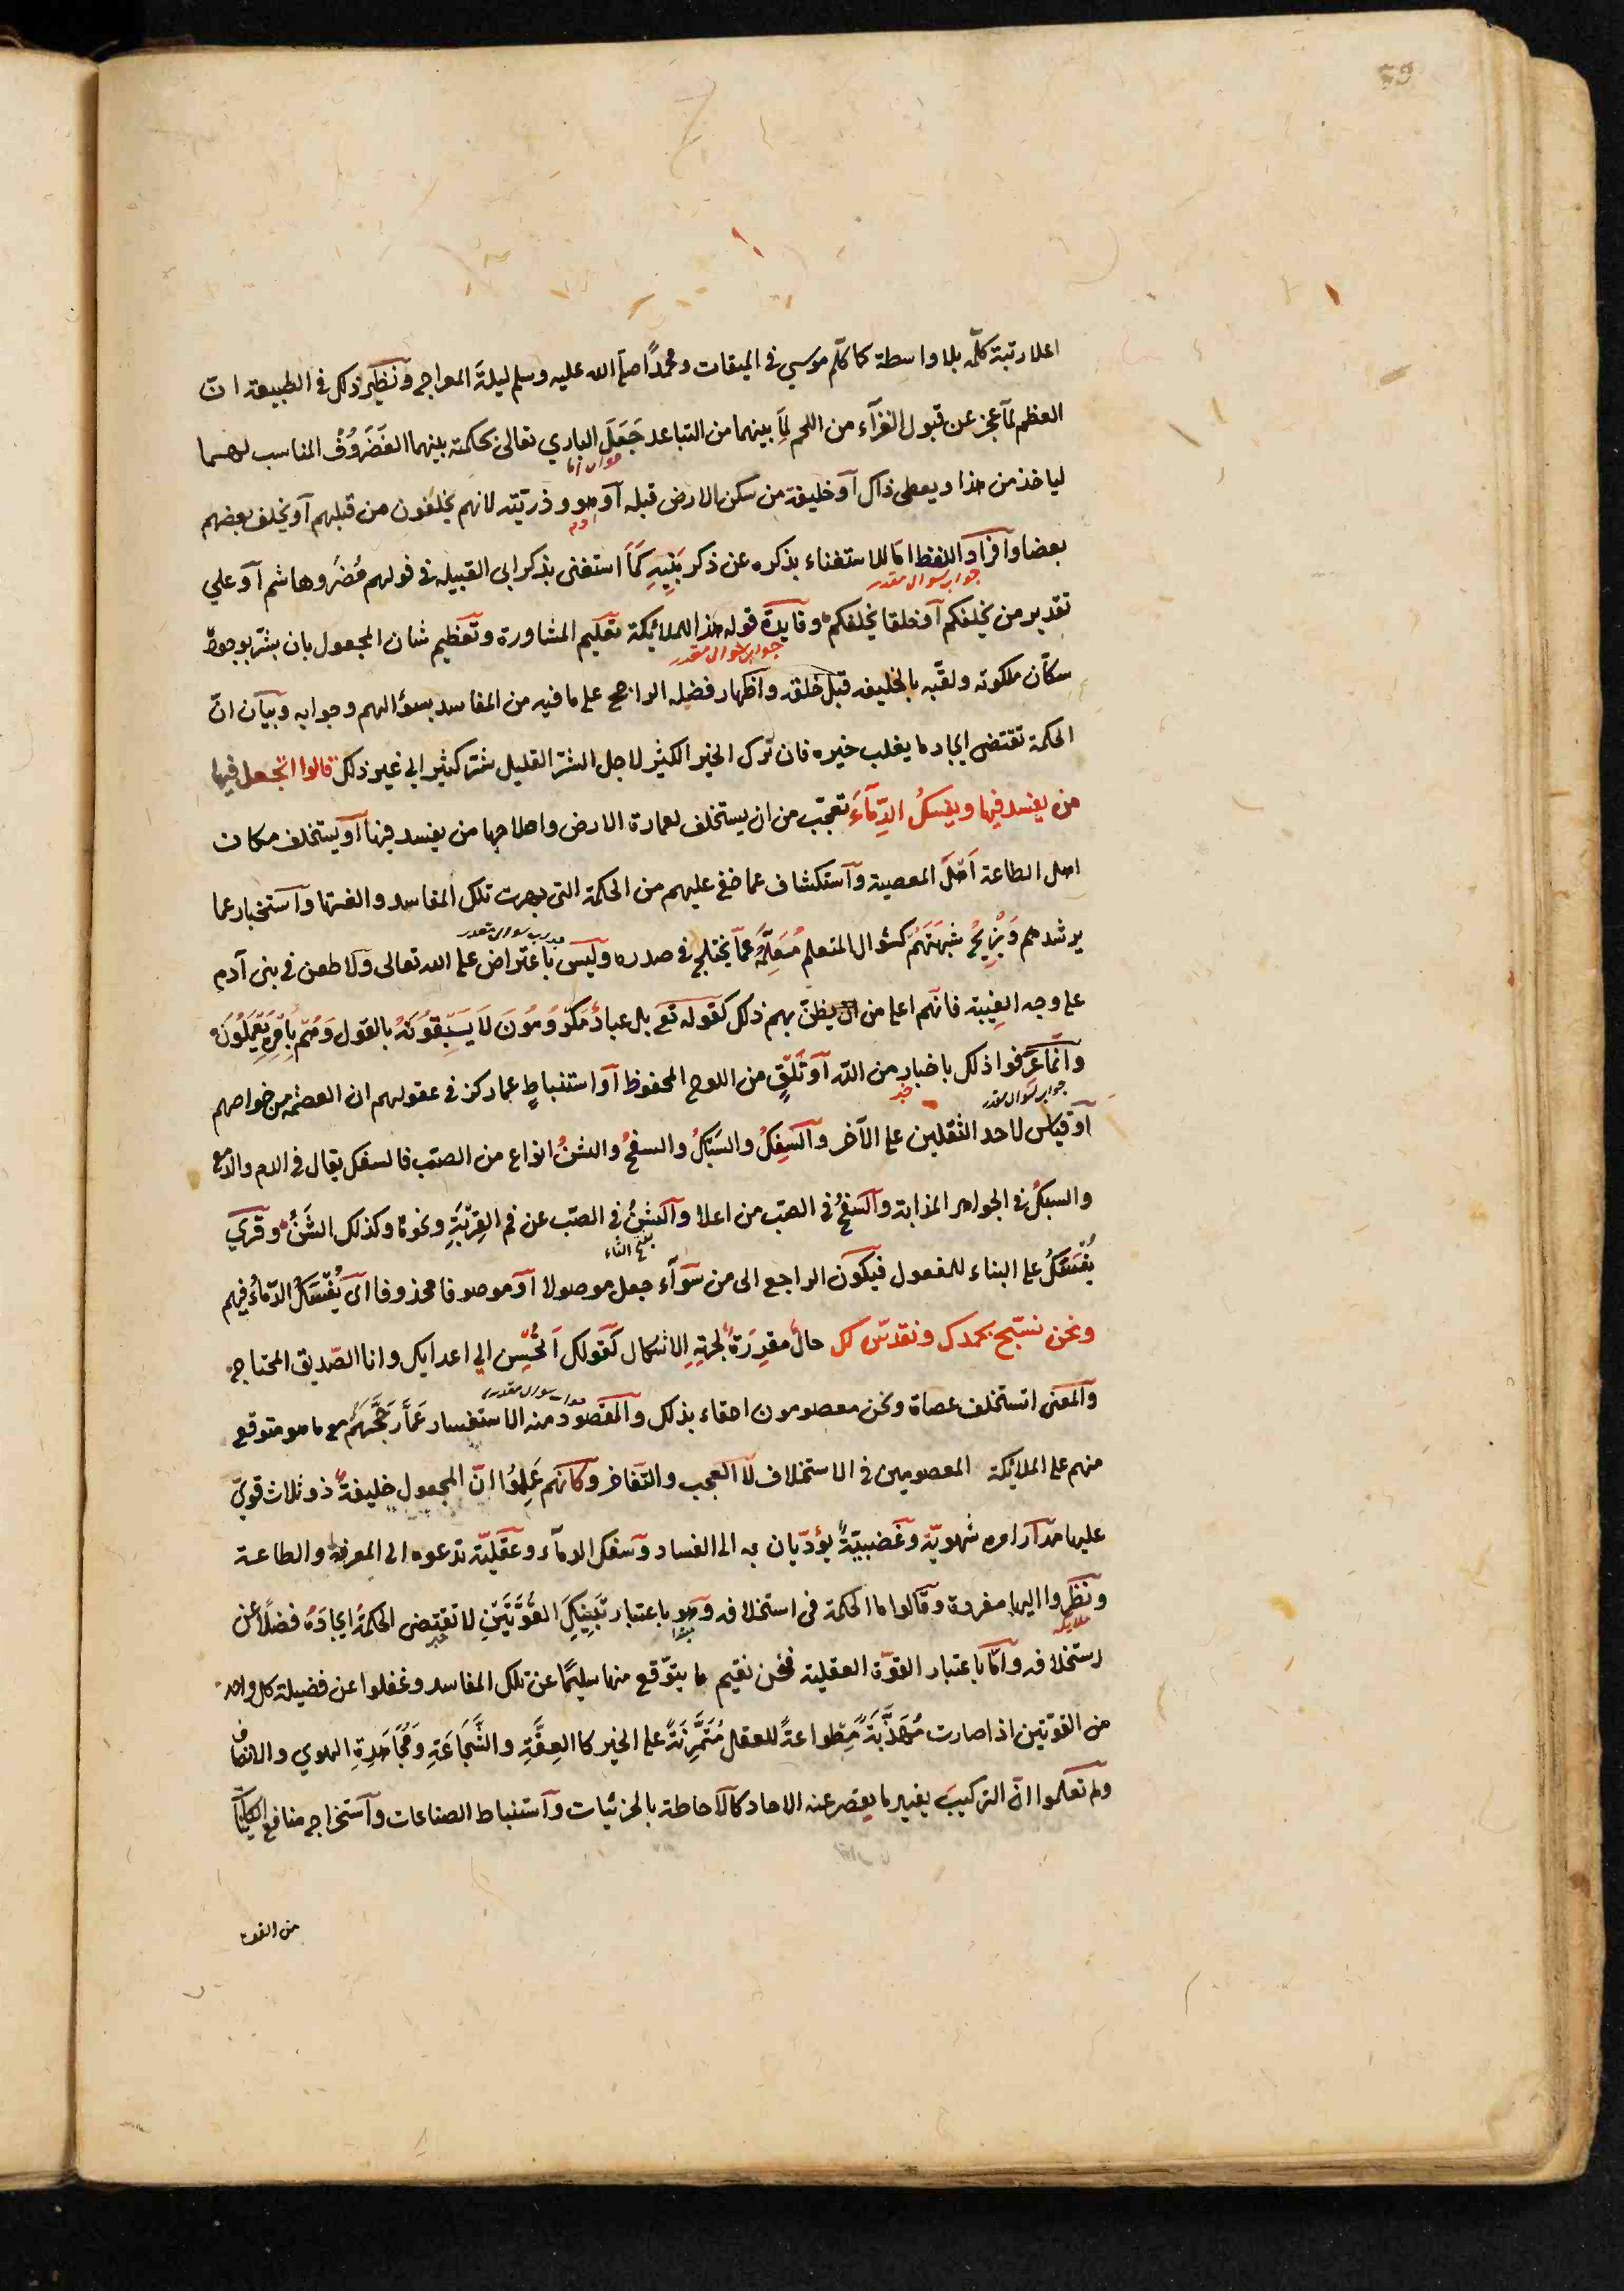 59
اعلا رتبة كلّمه بلا واسطة كما كلّم موسي في الميقات ومحمدًا صلي الله عليه وسلم ليلة المعراج ونظير ذلك في الطبيعة انّ
العظم لمّا عجز عن قبول الغذآء من اللحم لِمَا بينهما من التباعد جَعَلَ الباري تعالى بحكمته بينهما الغَضَرُوُفْ المناسب لهما
لياخذ من هذا ويعطى ذاك آو خليفة من سكن الارض قبله آو هو وذريّته لانهم يخلفون من قبلهم آو يخلف بعضهم
ادم
بعضا وآفراد اللفظ امّا للاستغناء بذكره عن ذكر بَنِيِهِ كَمَا استغنى بذكر ابى القبيله في قولهم مُضَرُ وهاشم آو علي
جواب سوال مقدر
تقدير من يخلفكم آو خلقا يخلفكم وفايدة قوله هذا للملائكة تعليم المشاورة وتعظيم شان المجعول بان بشّر بوجوده
جواب سوال مقدر
سكّان ملكوته ولقّبه بالخليفه قبل خلقه وآظهار فضله الراجح على ما فيه من المفاسد بسؤالهم وجوابه وبيان انّ
الحكمة تقتضى ايجاد ما يغلب خيره فان ترك الخير الكثير لاجل الشرّ القليل شرّ كثير الي غير ذلك قالوا اتجعل فيها
من يفسد فيها ويفسكُ الدِّمَآءَ تعجّب من ان يستخلف لعمارة الارض واصلاحها من يفسد فيها آو يستخلف مكان
اهل الطاعة اَهْلَ المعصية وآستكشاف عما خفى عليهم من الحكمة التي بهرت تلك المفاسد والغتها وآستخبار عما
يرشدهم وَيُزِيحُ شبهَتَهُمْ كسُوال المتعلم مُعَلِّمَهُ عمّا يختلج في صدره وليس باعتراض على الله تعالى ولا طعن في بنى آدم
جواب سوال مقدر
على وجه الغيبة فانهم اعلى من ان يظنّ بهم ذلك كقوله تع بل عبادٌ مكرومُونَ لَا يَسْبِقُوُنَهُ بالقول وَهُمْ بِاَمْرِهِ يَعْمَلُونَ
وآنّما عَرَفوا ذلك باخبارٍ من الله آو تَلَقٍّ من اللوح المحفوظ آو استنباطٍ عما ركز في عقولهم ان العصمه من خواصهم
جواب سوال مقدر
آو قياس لاحد الثقلين على الآخر وآلسَفْكُ والسَبْكُ والسفحُ والشنُّ انواع من الصبّ فالسفك يقال في الدم والدمع
والسبكُ في الجواهر المذابة وآلسفحُ في الصبّ من اعلا وآلشنُّ في الصبّ عن فم القِرْبَةِ ونحوها وكذلك الشَنُّ وقري
يُفْسَكُ على البناء للمفعول فيكون الراجع الى من سَوآء جعل موصولا آو موصوفا محذوفا اى يُفْسَكُ الدّماءُ فيهم
ونحن نسبّح بحمدك ونقدّس لك حالٌ مقرِرَةٌ لجهةِ الاشكال كقولك اَتُحْسِن الي اعدايك وانا الصّديق المحتاج
والمعنى اتستخلف عصاة ونحن معصومون احقاء بذلك والمقصود منه الاستفسار عَمَّا رَجَّحَهُمْ مع ما هو متوقع
سوال مقدر
منهم على الملائكة المعصومين في الاستخلاف لا العجب والتفاخر وكانهم عَلِمُوُا انّ المجعول خليفةً ذو ثلاث قويً
عليها مدآر امره شهويّة وغضبيّةٌ يؤدّيان به الى الفساد وسفك الدمآء وعقليّة تدعوه الى المعرفة والطاعة
ونظروا اليها مفردة وقالوا ما الحكمة في استخلافه وهو باعتبار تَيِنِكَ القُوَّتَيْنِ لا تقتضى الحكمةُ ايجادَهُ فضلًا عن
استخلافه وامّا باعتبار القوّة العقلية فنحن نقيم ما يتوّقع منها سليمًا عن تلك المفاسد وغفلوا عن فضيلة كل واحد
من القوّتين اذا صارت مُهَذَّبَةً مِطواعةً للعقل مُتَمَّرِنَةً على الخير كالعِفَّةِ والشَّجَاعَةِ وَمُجَاهَدَةِ الهوي والانصاف
ولم تعلموا انّ التركيبَ يفيد ما يقصر عنه الاحاد كالآحاطة بالجزئيات وآستنباط الصناعات وآستخراج منافع الكاينات
من القوة